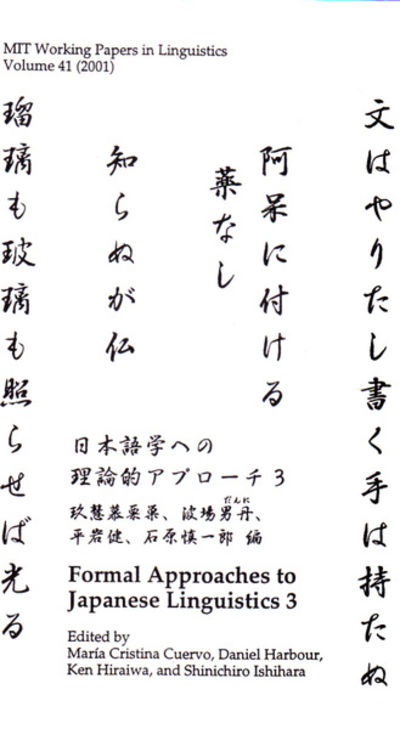 MIT Working Papers in Linguistics
Volume 41 (2001)
文はやりたし書く手は持たぬ
阿呆に付ける
薬なし
知らぬが仏
瑠璃も玻璃も照らせば光る
日本語学への
理論的アプローチ 3
玖慧慕栗巣、波場男丹、
だんに
平岩健、石原慎一郎 編
Formal Approaches to
Japanese Linguistics 3
Edited by
María Cristina Cuervo, Daniel Harbour,
Ken Hiraiwa, and Shinichiro Ishihara